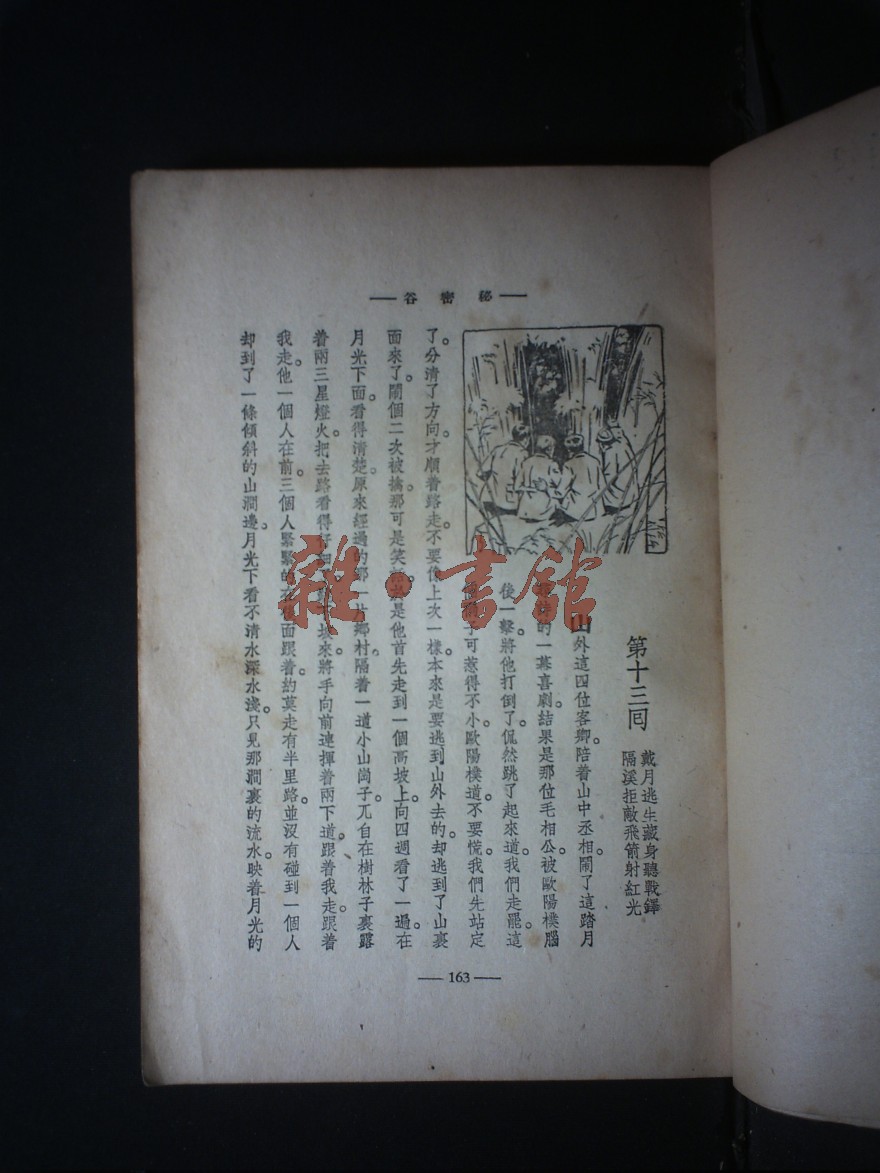 秘密谷
第十三囘
戴月逃生藏身聽戰鐸
隔溪拒敵飛箭射紅光
山外這四位客鄉。陪着山中丞相。鬧了這踏月
的一幕喜劇。結果是那位毛相公。被歐陽樸腦
後一擊。將他打倒了。侃然跳了起來道。我們走罷。這
子可惹得不小。歐陽樸道。不要慌。我們先站定
了。分清了方向。才順着路走。不要像上次一樣。本來是要逃到山外去的。却逃到了山裏
面來了。鬧個二次被擒。那可是笑話。於是他首先走到一個高坡上。向四週看了一遍。在
月光下面。看得清楚。原來經過的那一片鄉村。隔着一道小山崗子。兀自在樹林子裏露
着兩三星燈火。把去路看得仔細。坡來。將手向前連揮着兩下道。跟着我走。跟着
我走。他一個人在前。三個人緊緊的在後面跟着。約莫走有半里路。並沒有碰到一個人
却到了一條傾斜的山澗邊。月光下看不清水深水淺。只見那澗裏的流水。映着月光的
163
雜·書館